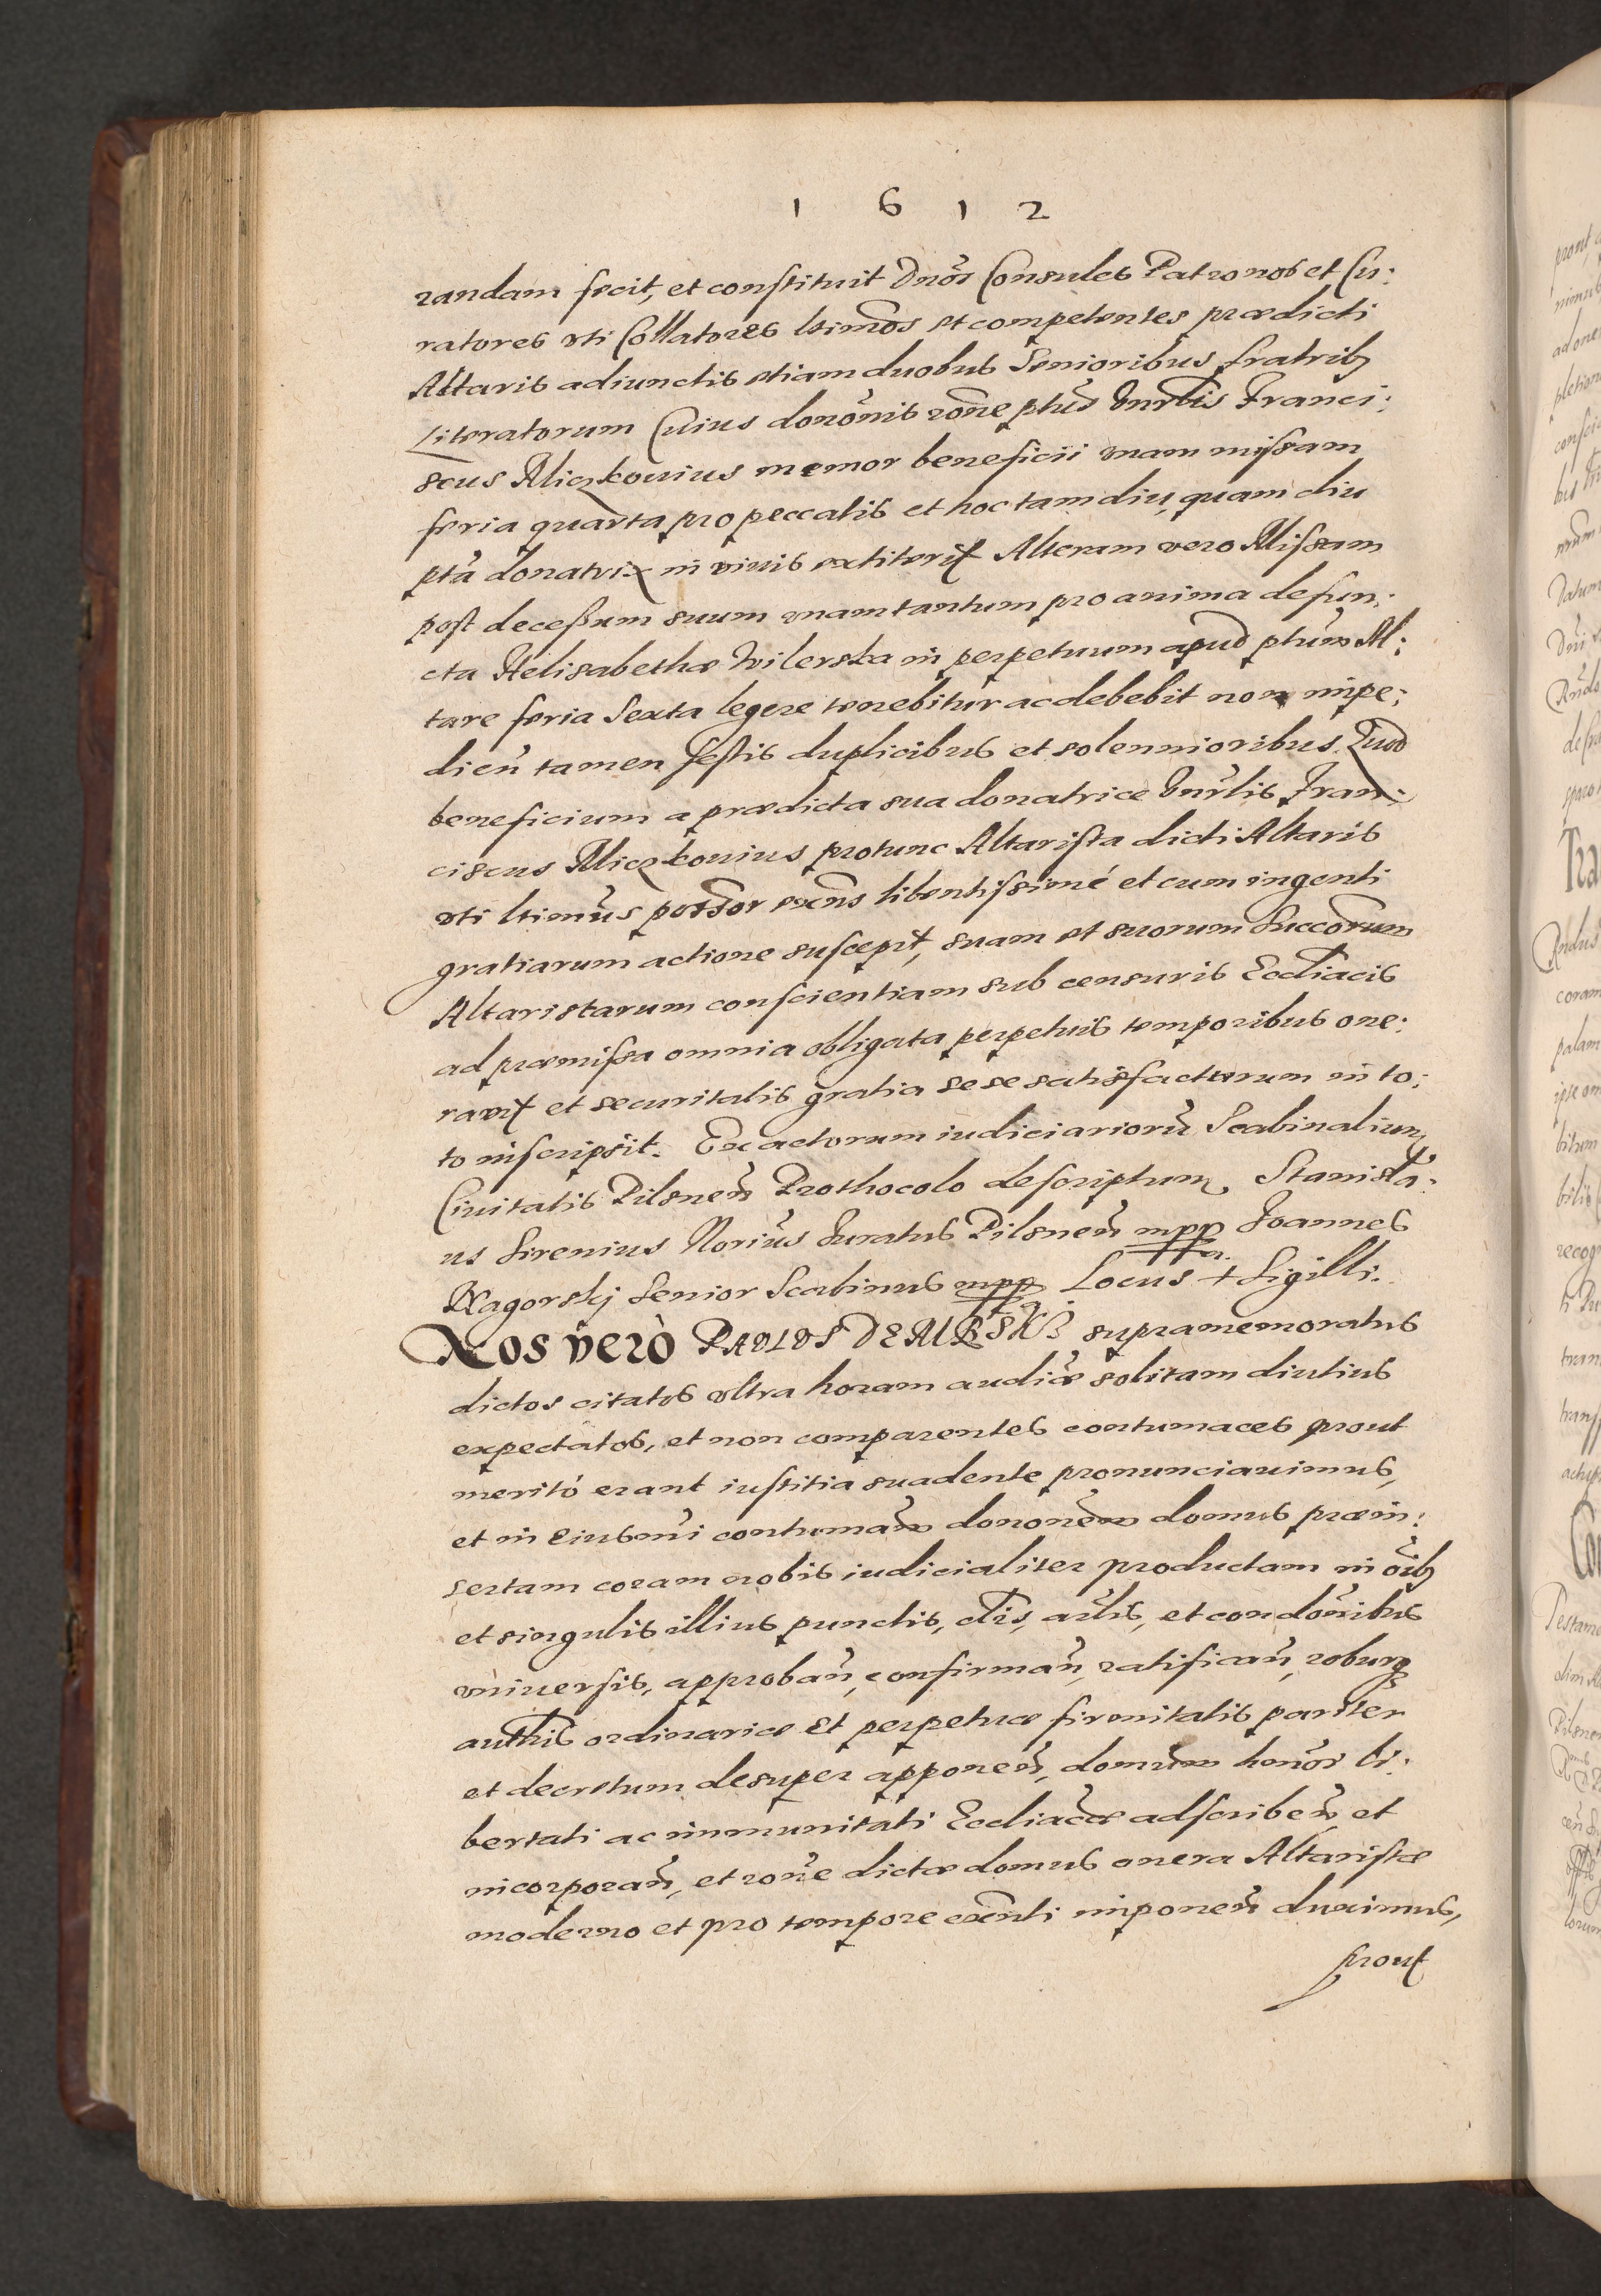 1 6 1 2
randam fecit, et constituit Dnōs Consules Patronos et Cu:
ratores vti Collatores ltimōs et competentes prædicti
Altaris adiunctis etiam duobus Senioribus fratribꝫ
Literatorum Cuius donōnis rōne ptūs Vnrlis Franci:
scus Miczkouius memor beneficii vnam missam
feria quarta pro peccatis et hoc tam diu, quam diu
ptā donatrix in viuis extiterit Alteram vero Missam
post decessum suum vnam tantum pro anima defun:
cta Helisabethæ Wilerska in perpetuum apud ptūm Al:
tare feria Sexta legere tenebitur ac debebit non impe:
dien̄ tamen festis duplicibus et solennioribus. Quod
beneficium a prædicta sua donatrice Vnrlis Fran:
ciscus Miczkouius protunc Altarista dicti Altaris
vti ltimūs possor exn̄s libentissimé et cum ingenti
gratiarum actione suscepit, suam et suorum Succōrum
Altaristarum conscientiam sub censuris Eccl̄iacis
ad præmissa omnia obligata perpetuis temporibus one:
rauit et securitatis gratia sese satisfacturum in to:
to inscripsit. Ex actorum iudiciariorū Scabinalium
Ciuitatis Pilsnen̄ Prothocolo descriptum Stanisla:
us Sirenius Norius Juratus Pilsnen̄ mpp Joannes
Nagorskj Senior Scabinus mpp Locus + Sigilli.
Nos verò PAVLVS DEMBSKI supramemoratus
dictos citatos vltra horam audiæ solitam diutius
expectatos, et non comparentes contumaces prout
meritó erant iustitia suadente pronunciauimus,
et in eiusmi contumam donōnem domus præin:
sertam coram nobis iudicialiter productam in oībꝫ
et singulis illius punctis, cl̄is, artis, et condōnibus
vniuersis, approban̄, confirman̄, ratifican̄, roburqꝫ
auth̄is ordinariæ et perpetuæ firmitatis pariter
et decretum desuper apponen̄, domum honōi li:
bertati ac immunitati Eccl̄iacæ adscriben̄, et
incorporan̄, et rōne dictæ domus onera Altaristæ
moderno et pro tempore exn̄ti imponen̄ duximus,
prout